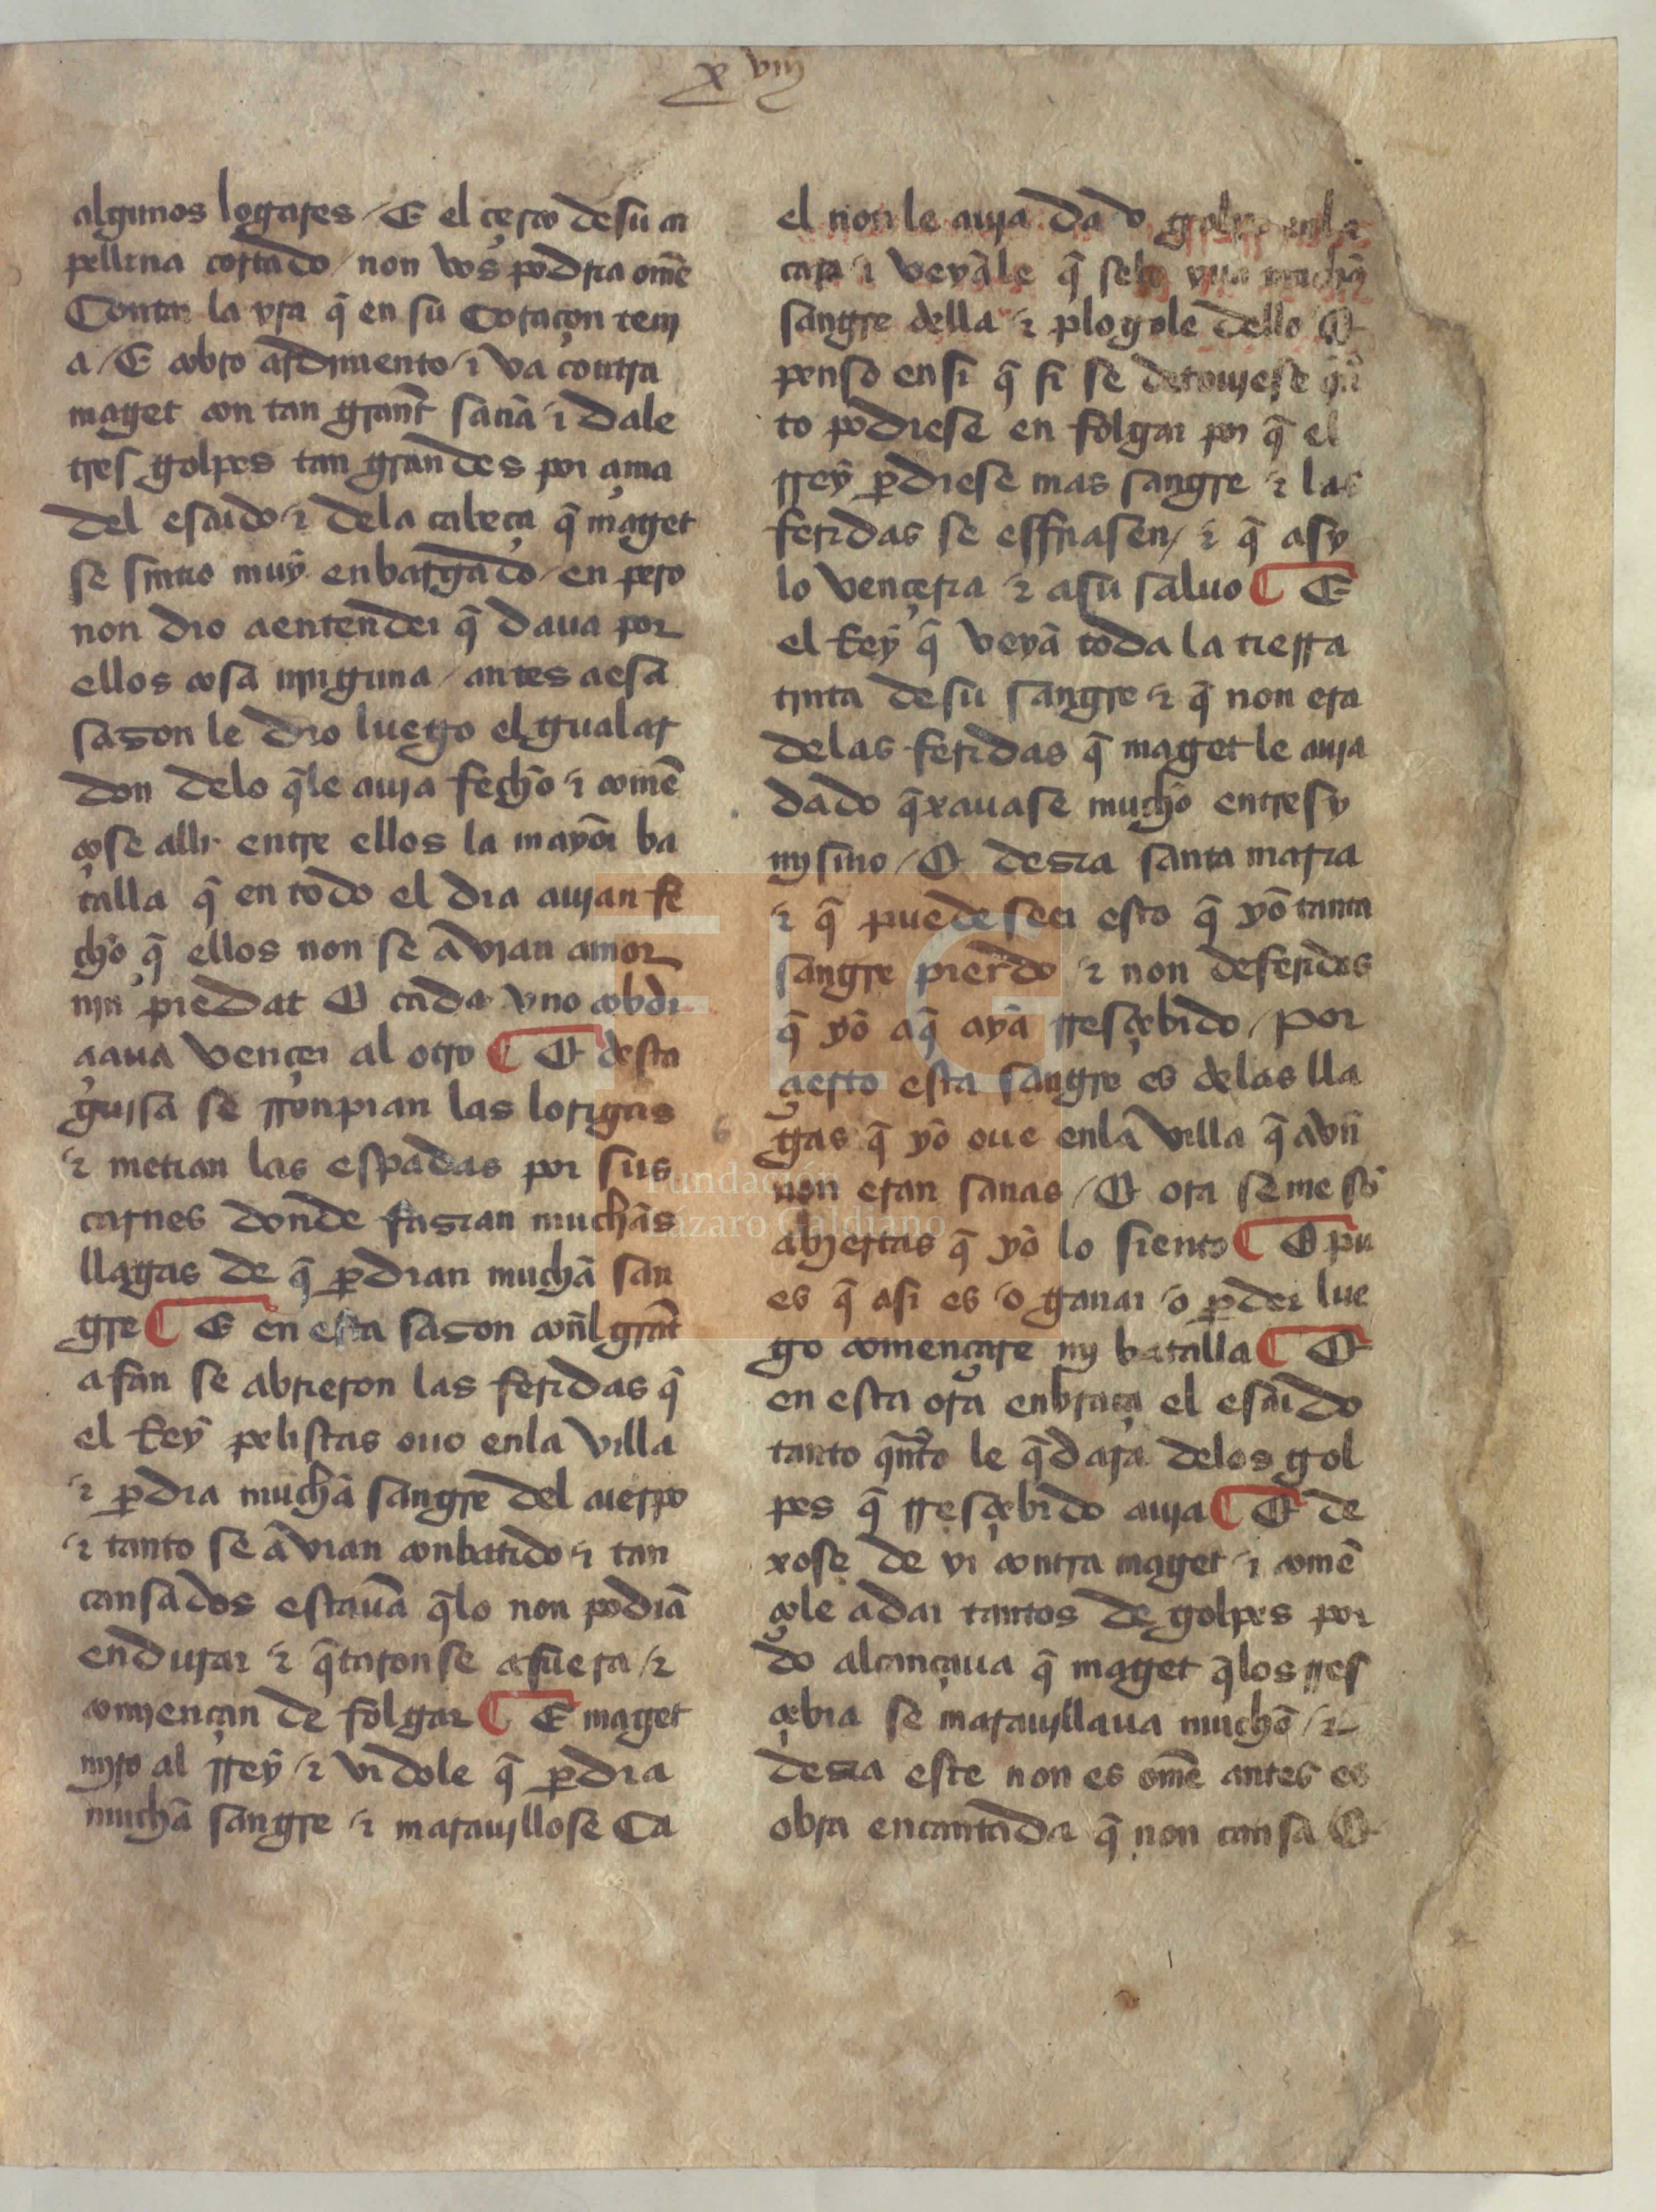 xviij
algunos logares / E el çerco de su ca
pellina cortado / non vos podria omē
Contar la yra q̄ en su Coraçon teni
a / E cobro ardimiento / ⁊ va contra
maget con tan grant saña ⁊ dale
tres golpes tan grandes por çima
del escudo ⁊ dela cabeça q̄ maget
se sintio muy enbargado / en pero
non dio a entender q̄ daua por
ellos cosa ninguna / antes a esa
sason le dio luego el gualar
don delo q̄le auja fecho ⁊ comē
çose alli entre ellos la mayor ba
talla q̄ en todo el dia aujan fe
cho q̄ ellos non se avian amor
njn piedat E cada vno cobdi
çiaua vençer al otro ¶ E desta
guisa se rronpian las lorigas
⁊ metian las espadas por sus
carnes donde fasian muchas
llagas de q̄ ꝑdian mucha san
gre ¶ E en esta sason con̄l grāt
afan se abrieron las feridas q̄
el Rey pelistas ouo enla villa
⁊ ꝑdia mucha sangre del cuerpo
⁊ tanto se avian conbatido ⁊ tan
cansados estauā q̄lo non podiā
endurar ⁊ q̄taronse afuera / ⁊
comjençan de folgar ¶ E maget
mjro al rrey ⁊ vidole q̄ ꝑdia
mucha sangre ⁊ marauijllose Ca
el non le auja dado golpe enla
cara ⁊ veyale q̄ sele yua mucha
sangre della ⁊ plogole dello E
penso en si q̄ si se detoujese q̄n
to podiese en folgar por q̄ el
rrey ꝑdiese mas sangre ⁊ las
feridas se esfriasen / ⁊ q̄ asy
lo vençeria ⁊ a su saluo ¶ E
el Rey q̄ veya toda la tierra
tinta de su sangre ⁊ q̄ non era
delas feridas q̄ maget le auja
dado q̄xauase mucho entre sy
mjsmo / E desia santa maria
⁊ q̄ puede seer esto q̄ yo tanta
sangre pierdo ⁊ non de feridas
q̄ yo aq̄ aya rresçebido / por
çierto esta sangre es delas lla
gas q̄ yo oue enla villa q̄ avn̄
non eran sanas / E ora se me sō
abjertas q̄ yo lo siento ¶ E pu
es q̄ asi es o ganar o ꝑder lue
go començare mj batalla ¶ E
en esta ora enbraça el escudo
tanto q̄nto le q̄dara delos gol
pes q̄ rresçebido auja ¶ E de
xose de yr contra maget ⁊ comē
çole a dar tantos de golpes por
do alcançaua q̄ maget q̄los rres
çebia se marauijllaua mucho / ⁊
desia este non es omē antes es
obra encantada q̄ non cansa E
FLG
Fundación
Lázaro Galdiano